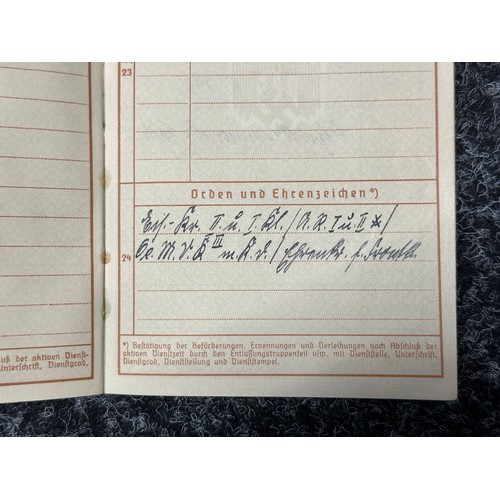 23
Orden und Ehrenzeichen*)
Eis.-Kr. II. u. I. Kl. / A.R. I u. II /
24
M. v. K III m. K. d. / Ehrenkr. f. Frontk.
*) Bestätigung der Beförderungen, Ernennungen und Verleihungen nach Abschluß der
aktiven Dienstzeit durch den Entlassungstruppenteil usw. mit Dienststelle, Unterschrift,
Dienstgrad, Dienststellung und Dienststempel.
uß der aktiven Dienst-
Unterschrift, Dienstgrad,